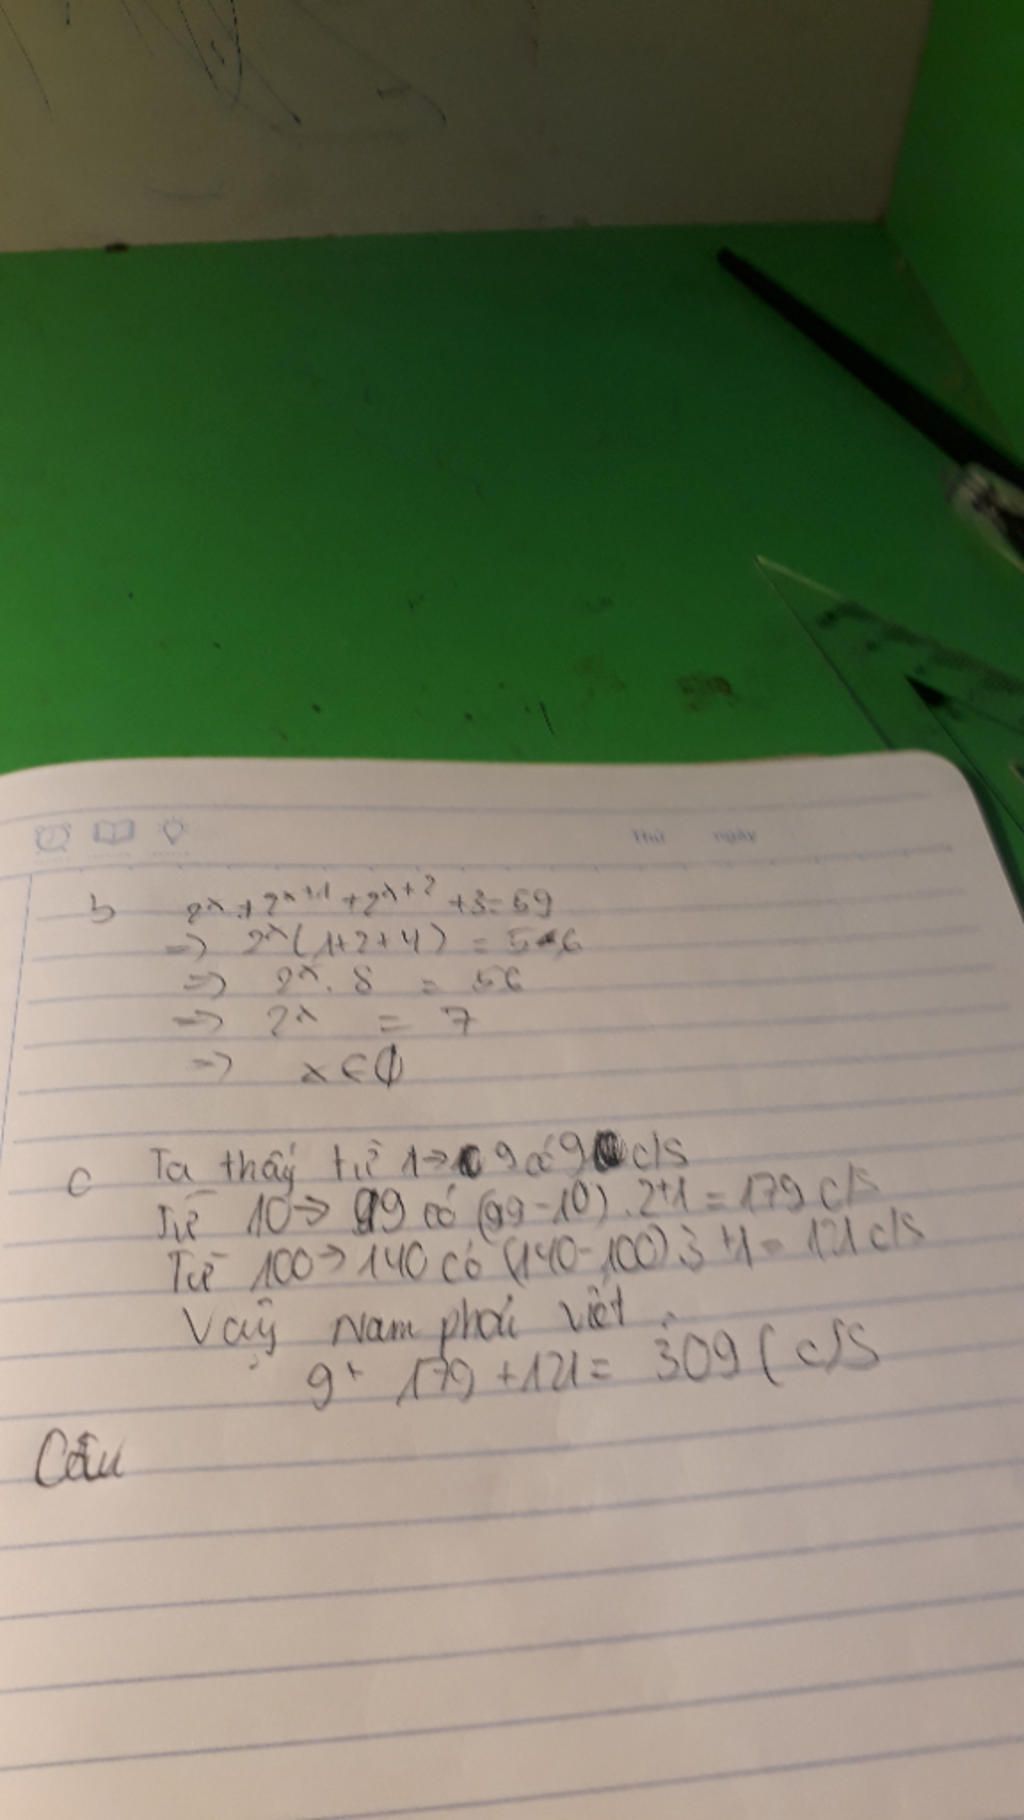 Thứ ngày
b 2^x + 2^{x+1} + 2^{x+2} + 3 = 59
=> 2^x (1+2+4) = 56
=> 2^x . 8 = 56
=> 2^x = 7
=> x ∈ ∅
c Ta thấy từ 1→9 có 9 c/s
Từ 10→99 có (99-10).2+1 = 179 c/s
Từ 100→140 có (140-100).3+1 = 121 c/s
Vậy Nam phải viết
9+ 179 + 121 = 309 (c/s
Câu